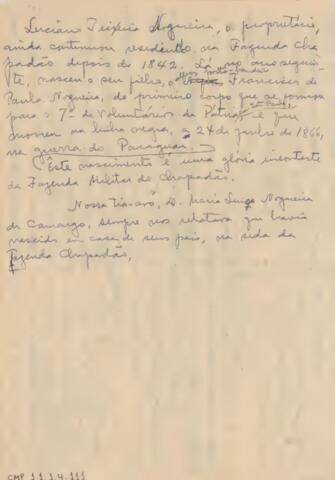 Luciano Teixeira Nogueira, o proprietário,
ainda continuou residindo na Fazenda Cha-
padão depois de 1842. Lá no ano seguin-
te, nasceu seu filho, o porta-bandeira Francisco de
Paula Nogueira, do primeiro corpo que se formou
para o 7º de Voluntários da Patria, e que
morreu na linha negra, a 24 de junho de 1866,
na guerra do Paraguay.
Êste nascimento é uma glória inconteste
da Fazenda Militar do Chapadão.
Nossa tia-avó, D. Maria Luiza Nogueira
de Camargo, sempre nos relatava que havia
nascido em casa de seus pais, na séde da
Fazenda Chapadão,
CMP 1.1.1.4.111